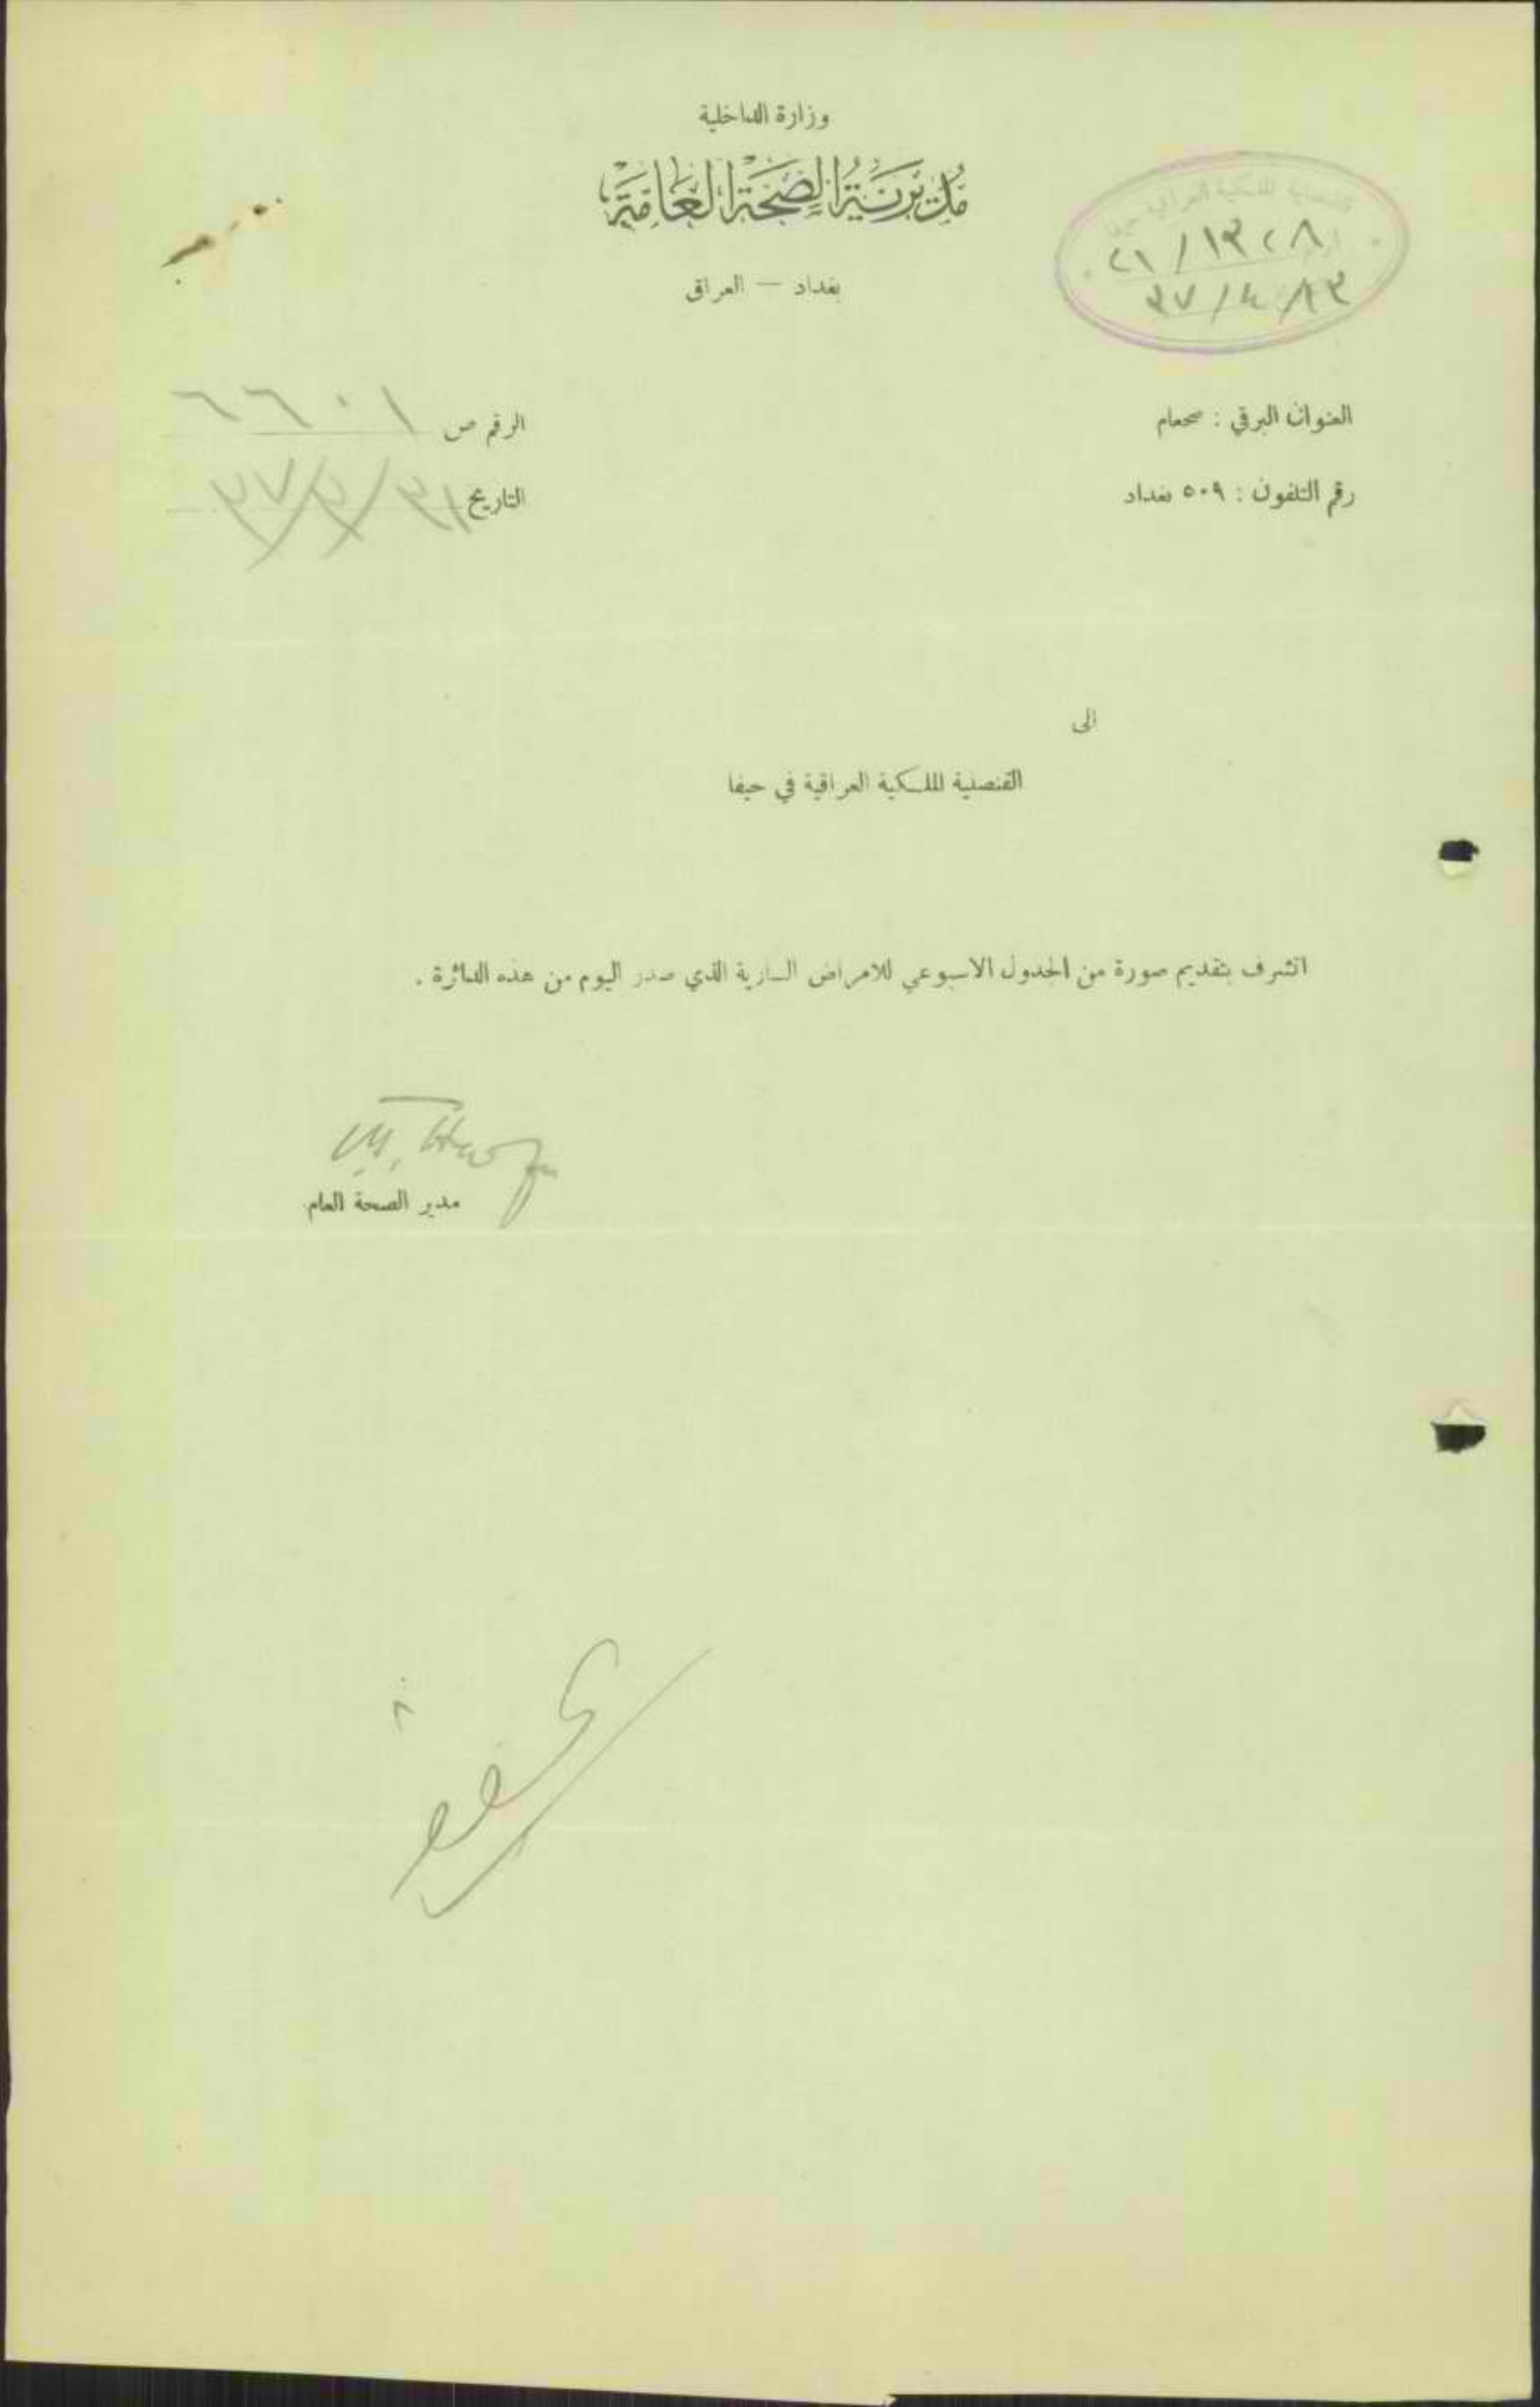 وزارة الداخلية
مديرية الصحة العامة
بغداد — العراق
القنصلية الملكية العراقية
العنوان البرقي : صحعام
رقم التلفون : ٥٠٩ بغداد
الرقم ص ٦٦٠١
التاريخ ٣١/٣/٣٧
الى
القنصلية الملكية العراقية في حيفا
اتشرف بتقديم صورة من الجدول الاسبوعي للامراض السارية الذي صدر اليوم من هذه الدائرة .
مدير الصحة العام